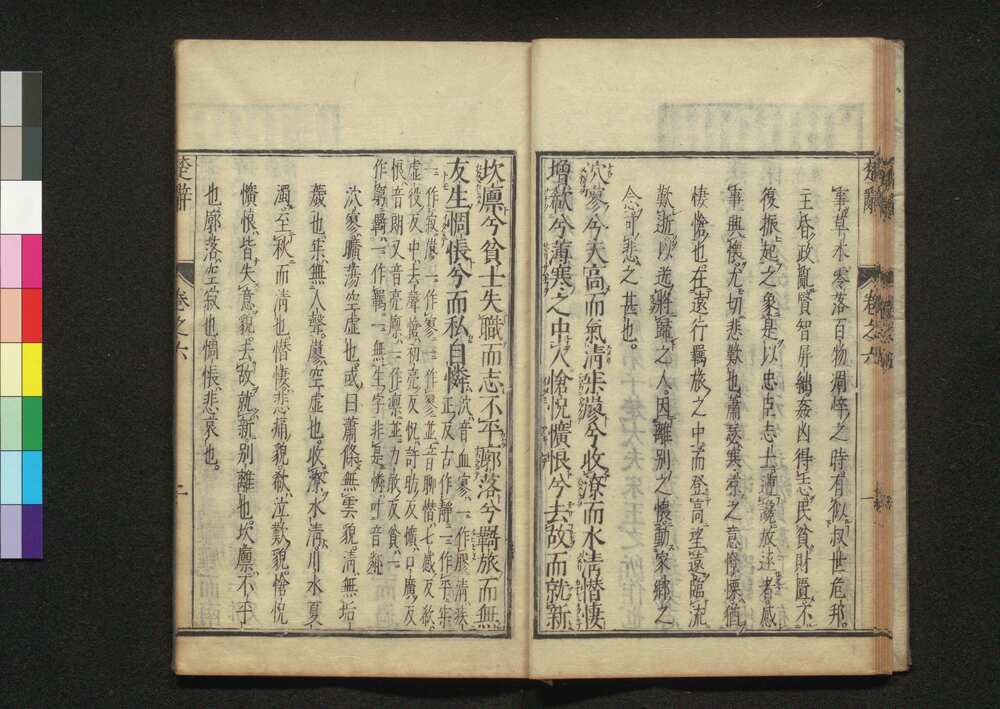 事草木零落百物凋悴之時有似叔世危邦
主昏政亂賢智屏絀姦凶得志民貧財匱不
復振起之象是以忠臣志士遭讒放逐者感
事興懷尤切悲歎也蕭瑟寒凉之意憭慄猶
悽愴也在遠行羈旅之中而登高望遠臨流
歎逝以送將歸之人因離別之懷動家鄉之
念可悲之甚也
泬寥兮天高而氣清寂寥兮收潦而水清憯悽
增欷兮薄寒之中人愴怳懭悢兮去故而就新
楚辭 卷之六 一
坎廩兮貧士失職而志不平廓落兮羇旅而無
友生惆悵兮而私自憐
泬音血寥一作膠清疾
正反古作瀞一作平寂
一作寂寥一作廖一作漻並音聊憯七感反欷
虛役反中去聲愴初亮反怳許昉反懭口廣反
悢音朗又音亮廩一作壈並力敢反貧一
作窮羇一作羈一無生字非是憐叶音
泬寥曠蕩空虛也或曰蕭條無雲貌清無垢
薉也寂無人聲寥空虛也收潦水清川水夏
濁至秋而清也憯悽悲痛貌欷泣歎貌愴怳
懭悢皆失意貌去故就新別離也坎廩不平
也廓落空寂也惆悵悲哀也
楚辭 卷之六 二